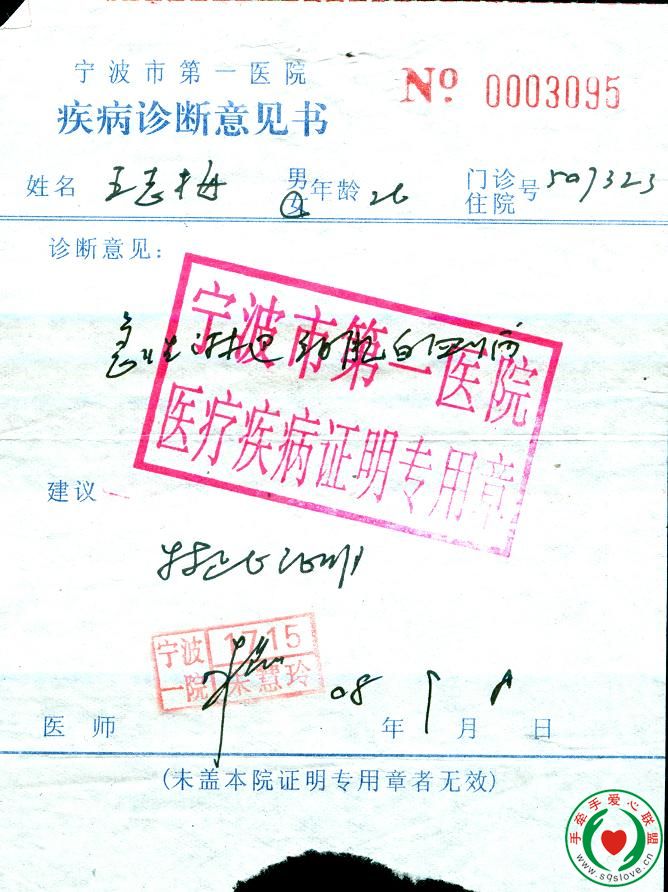 宁波市第一医院
疾病诊断意见书
Nº 0003095
姓名 王志梅 男女 年龄 26 门诊住院号 507323
诊断意见:
急性淋巴细胞白血病
宁波市第一医院
医疗疾病证明专用章
建议
特此证明
宁波一院 1715 朱慧玲
医师 08年 月 8日
(未盖本院证明专用章者无效)
手牵手爱心联盟
www.sqslove.cn